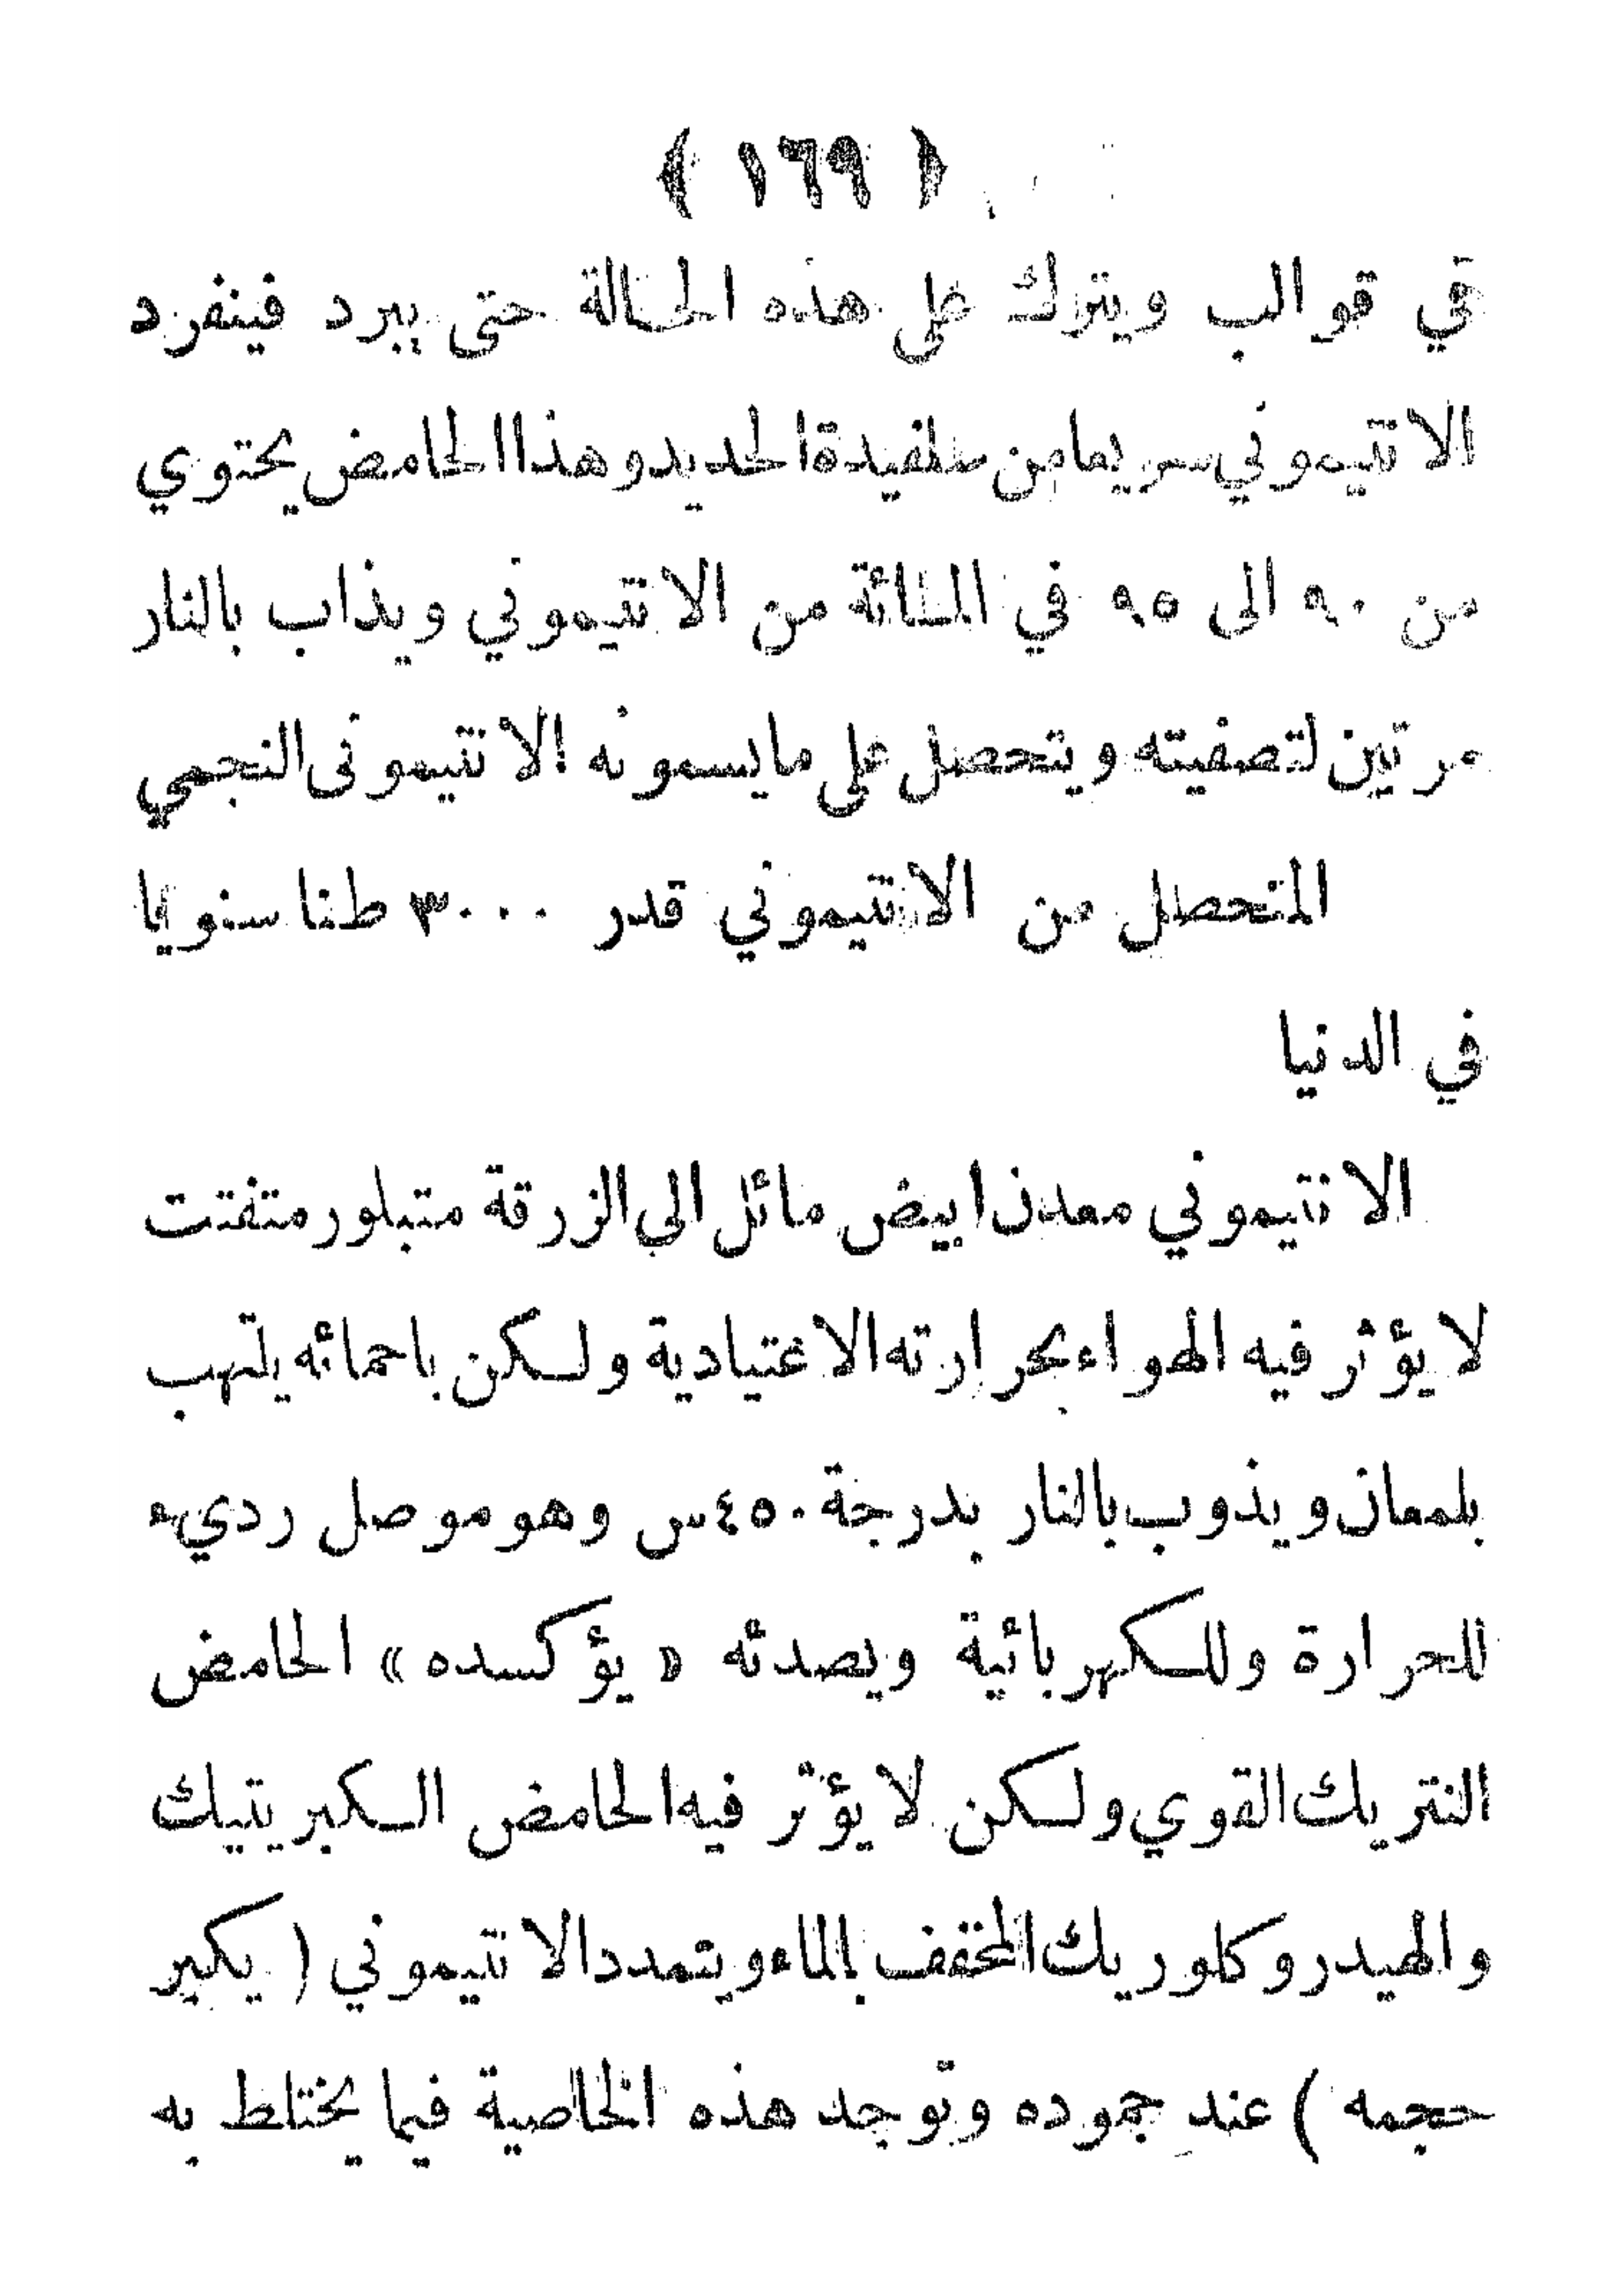 ﴿ ١٦٩ ﴾
في قوالب ويترك على هذه الحالة حتى يبرد فينفرد
الانتيموني سريعا من سلفيدة الحديد وهذا الحامض يحتوي
من ٩٠ الى ٩٥ في المائة من الانتيموني ويذاب بالنار
مرتين لتصفيته ويتحصل على مايسمونه الانتيمونى النجمي
المتحصل من الانتيموني قدر ٣٠٠٠ طنا سنويا
في الدنيا
الانتيموني معدن ابيض مائل الى الزرقة متبلور متفتت
لا يؤثر فيه الهواء بحرارته الاعتيادية ولكن باحمائه يلتهب
بلمعان ويذوب بالنار بدرجة ٤٥٠س وهو موصل رديء
للحرارة وللكهربائية ويصدئه « يؤكسده » الحامض
النتريك القوي ولكن لا يؤثر فيه الحامض الكبريتيك
والهيدروكلوريك المخفف بالماء ويتمدد الانتيموني ( يكبر
حجمه ) عند جموده وتوجد هذه الخاصية فيما يختلط به